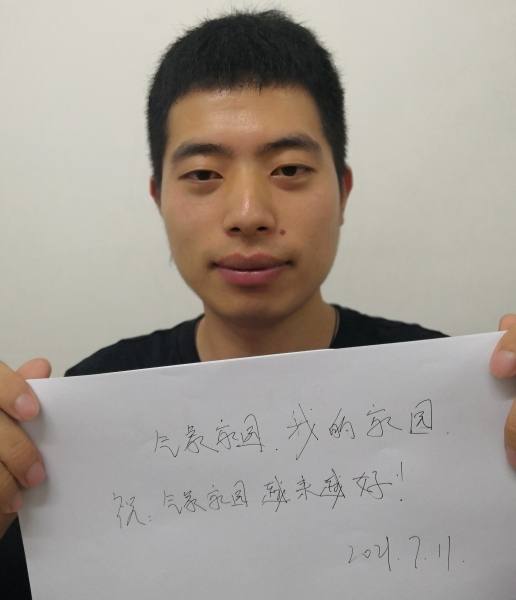 气象家园.我的家园.
祝:气象家园越来越好!
2021.7.11.